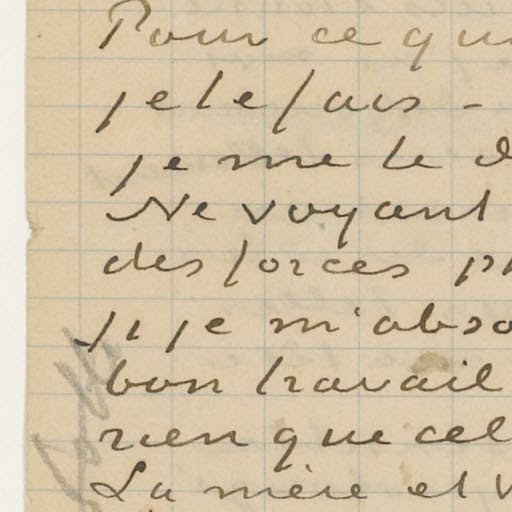 Pour ce qui
je le fais -
je me le d
Ne voyant
des forces pr
si je m'abso
bon travail
rien que cel
La mère et v